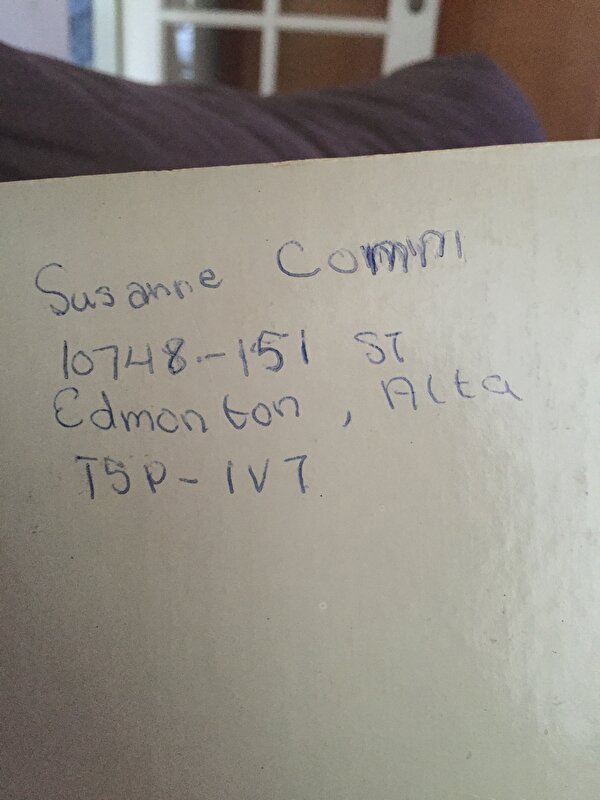 Susanne Comm
10748-151 ST
Edmonton, Alta
T5P-1V7